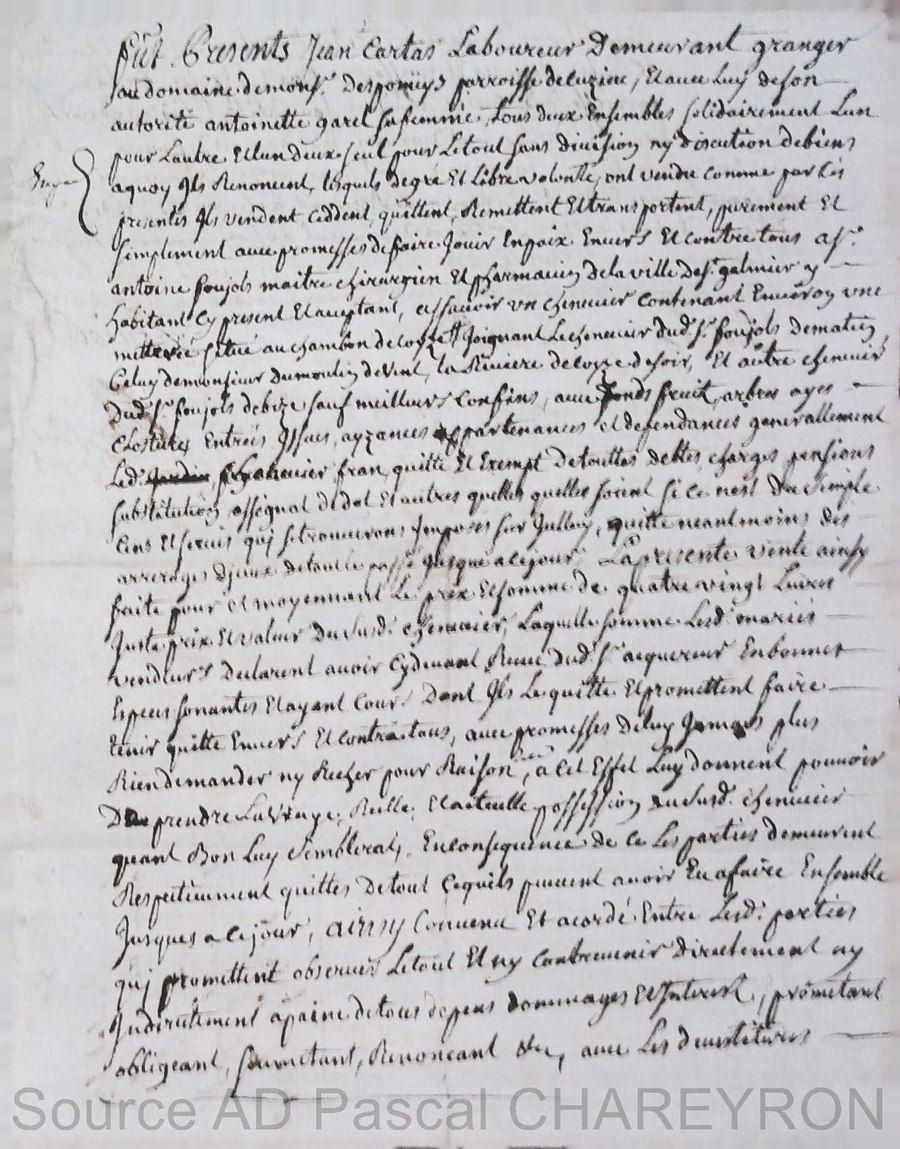 fut Presents Jean Cartas Laboureur Demeurant granger
au domaine de mons.r Despomeys parroisse de luzieu, Et avec Luy de son
autorité antoinette garel sa femme, tous deux Ensembles solidairement Lun
pour Lautre Et lun deux seul pour Letout sans division ny discution de biens
aquoy Ils Renoncent, lesquels de gre Et libre volonté, ont vendu comme par Ces
presentes Ils vendent Ceddent quittent, Remettent Et transportent, purement Et
simplement avec promesses de faire Jouir En paix Envers Et contre tous a s.r
antoine foujols maitre chirurgien Et pharmacien de la ville de s.t galmier y
habitant Cy present Et aceptant, assavoir un chenevier contenant Environ une
metteree situé au chambon de Coyze Joignant Le chenevier dud s.r foujols de matin
Celuy de monsieur Dumoulin de vent, la Riviere de coyze de soir, Et autre chenevier
Dud s.r foujols de bize sauf meilleurs Confins, avec fonds fruit, arbres ayes
Clostures Entrées Issues, ayzances appartenances et dependances generallement
Led. chenevier fran, quitte Et Exempt de touttes debtes charges pensions
substitution, assignat de dot Et autres quelles quelles soient si ce nest du simple
Cens Et servis quj se trouveront Imposés sur Julluy, quitte neantmoins des
arrerages djeux de tout le passé Jusque a ce jour, La presente vente ainsy
faite pour et moyennant Le prix Et somme de quatre vingt Livres
Juste prix Et valeur Du susd. chenevier, Laquelle somme Lesd. mariés
vendeurs Declarent avoir Cy devant Receue Dud s.r acquereur En bonnes
Especes sonantes Et ayant Cours Dont Ils Le quitte Et promettent faire
tenir quitte Envers Et contre tous, avec promesses De luy Jamais plus
Rien demander ny Rechercher pour Raison, a Cet Effet Luy donnent pouvoir
De prendre La vraye, Reelle, Et actuelle possession du susd. chenevier
quant Bon Luy Semblerat, En consequence de ce Les parties demeurent
Respectivement quittes De tout Ce quils peuvent avoir Eu afaire Ensemble
Jusques a ce jour, ainsy Convenu Et acordé Entre Lesd. parties
quj promettent observer Le tout Et ny contrevenir directement ny
Indirectement a paine de tous depens dommages Et Interest, prometant
obligeant, soumetant, Renonceant &c, avec Les
Source AD Pascal CHAREYRON